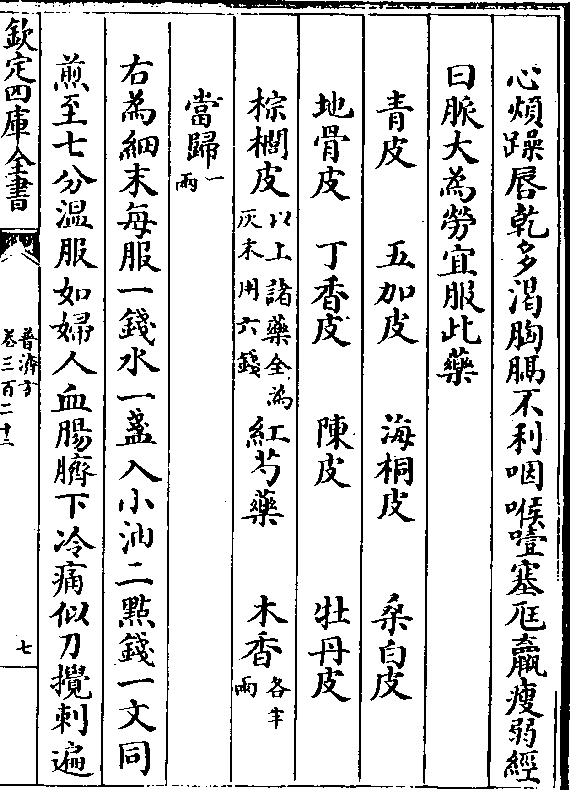 心煩躁唇乾多渴胸膈不利咽喉噎塞尫羸瘦弱經
曰脈大為勞宜服此藥
青皮　五加皮　海桐皮　桑白皮
地骨皮　丁香皮　陳皮　牡丹皮
棕櫚皮以上諸藥全為灰末用六錢　紅芍藥　木香各半兩
當歸一兩
右為細末每服一錢水一盞入小油二點錢一文同
煎至七分溫服如婦人血腸臍下冷痛似刀攪刺遍
欽定四庫全書
普濟方
卷三百二十二
七